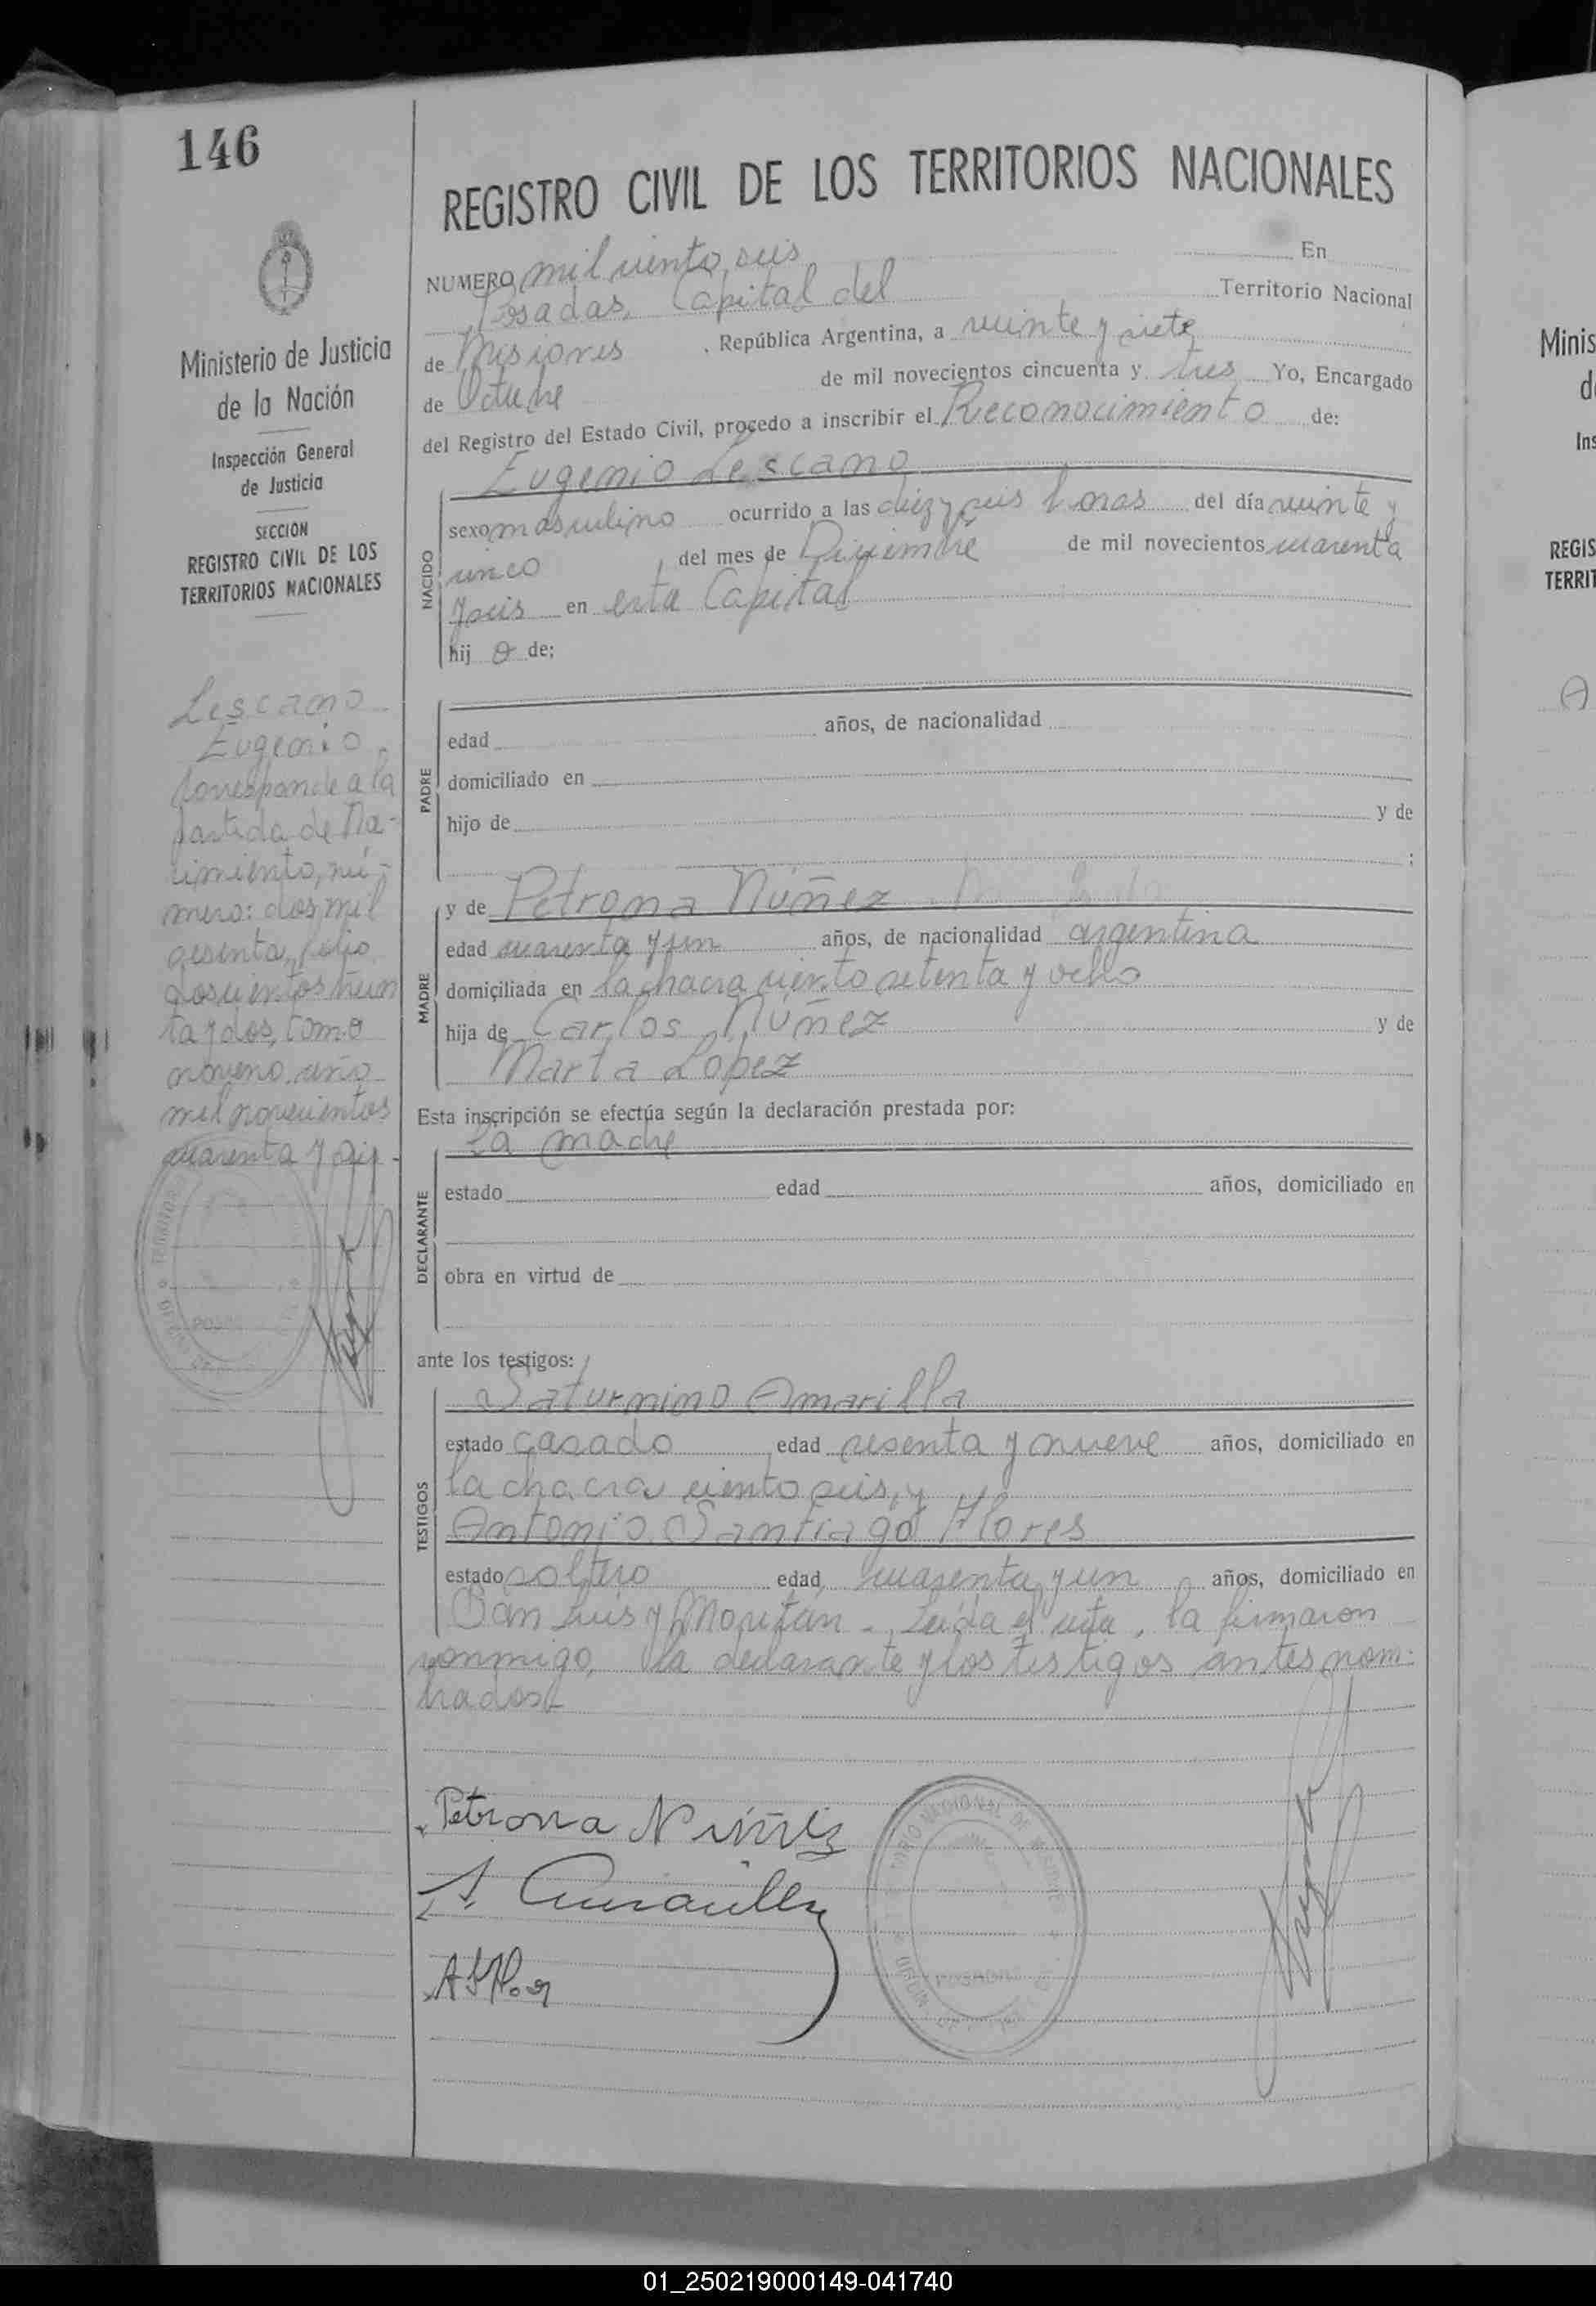 146
REGISTRO CIVIL DE LOS TERRITORIOS NACIONALES
Ministerio de Justicia
de la Nación
Inspección General
de Justicia
SECCION
REGISTRO CIVIL DE LOS
TERRITORIOS NACIONALES
Lescano
Eugenio.
Corresponde a la
partida de Na-
cimiento, nú-
mero: dos mil
sesenta, folio
doscientos
ta y dos, tomo
noveno, año
mil novecientos
cuarenta y seis.-
NUMERO mil ciento seis En
Posadas, Capital del Territorio Nacional
de Misiones , República Argentina, a veinte y siete
de Octubre de mil novecientos cincuenta y tres Yo, Encargado
del Registro del Estado Civil, procedo a inscribir el Reconocimiento de:
Eugenio Lescano
NACIDO
sexo masculino ocurrido a las diez y seis horas del día veinte y
cinco , del mes de Diciembre de mil novecientos cuarenta
y seis en esta Capital
hij o de:
PADRE
edad años, de nacionalidad
domiciliado en
hijo de y de
;
MADRE
y de Petrona Núñez
edad cuarenta y un años, de nacionalidad argentina
domiciliada en la chacra ciento setenta y ocho
hija de Carlos Núñez y de
Marta Lopez
Esta inscripción se efectúa según la declaración prestada por:
La madre
DECLARANTE
estado edad años, domiciliado en
obra en virtud de
ante los testigos:
TESTIGOS
Saturnino Amarilla
estado casado edad sesenta y nueve años, domiciliado en
la chacra ciento seis, y
Antonio Santiago Flores
estado soltero edad cuarenta y un años, domiciliado en
San Luis y Moritán. Leída el acta, la firmaron
conmigo, la declarante y los testigos antes nom-
brados.-
Petrona Núñez
S Amarilla
ASFlor
POSADAS
Minis
d
Ins
REGIS
TERRIT
A
01_250219000149-041740